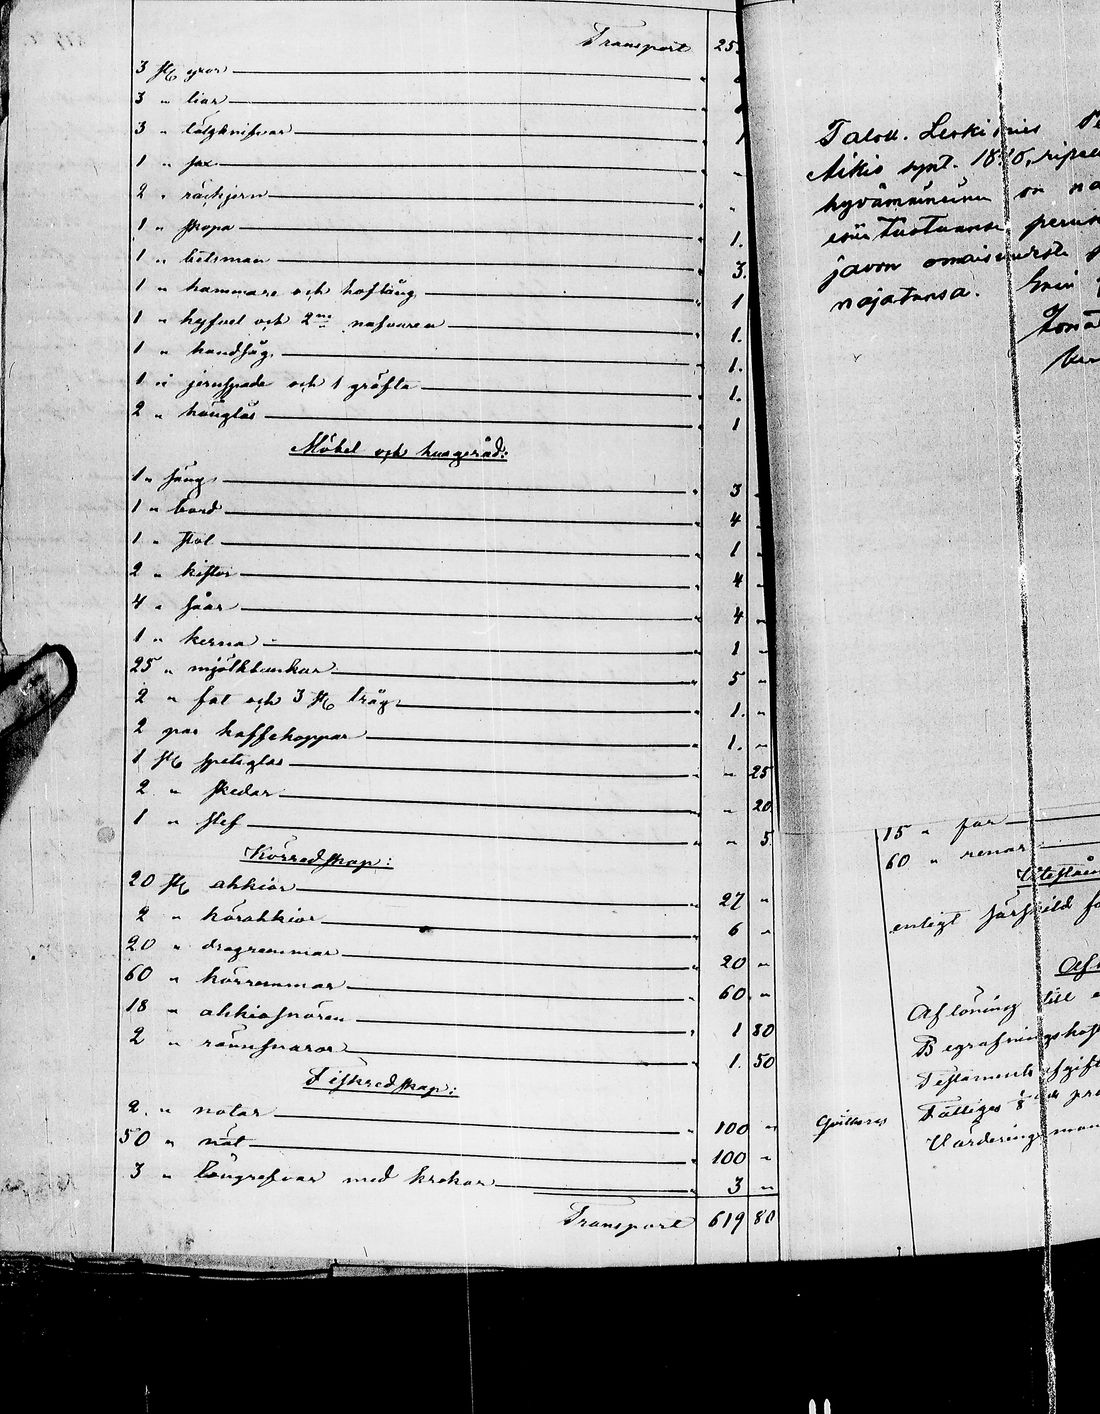 Transport 25
3 st yxor
3 " liar
3 " täljknifvar 1
1 " sax "
2 " räckjern "
1 " skopa 1.
1 " betsman 3.
1 " hammare och hoftång 1
1 " hyfvel och 2ne nafvaren 1.
1 " handsåg 1.
1 " jernspade och 1 gräfta 1.
2 " hänglås 1
Möbel och husgeråd:
1 " säng 3 "
1 " bord 4 "
1 " stol 1 "
2 " kistor 4 "
4 " såar 4 "
1 " kerna 1 "
25 " mjölkbunkar 5 "
2 " fat och 3 st tråg 1. "
2 par kaffekoppar 1. "
1 st spetsglas " 25
2 " skedar " 20
1 " slef " 5
Körredskap:
20 st ahkior 27 "
2 " körahkior 6 "
20 " dragremmar 20 "
60 " körremmar 60 "
18 " ahkiosnören 1 80
2 " rännsnaror 1. 50
Fiskredskap:
2 " notar 100 "
50 " nät 100 "
3 " långrefvar med krokar 3 "
Transport 619 80
Talou. Leski
Aikio synt.
hyvämuinen on
javon omaisuudesta
15 " får
60 " renar
enligt särskild
Aflöning till
Begrafningskost
Testaments afgift
Fattiges
Värderingsman